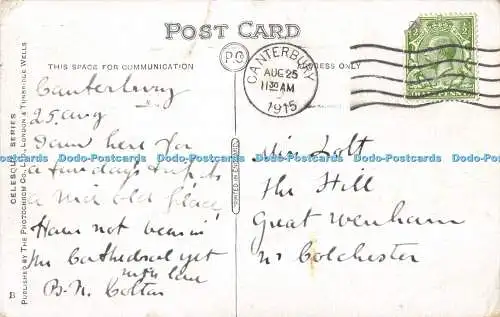 POST CARD
THIS SPACE FOR COMMUNICATION
ADDRESS ONLY
P.C
CANTERBURY
AUG 25
11 30 AM
1915
Canterbury
25. Aug
I am here for
a few day's trip its
a nice old place
Have not been in
the Cathedral yet
with love
B. N.
Miss
The Hill
Great Wenham
Nr Colchester
CELESQUE SERIES
PUBLISHED BY THE PHOTOCHROM CO., LTD., LONDON & TUNBRIDGE WELLS
PRINTED IN ENGLAND
B
Dodo-Postcards Dodo-Postcards Dodo-Postcards Dodo-Postcards Dodo-Postcards Dodo-Postcards